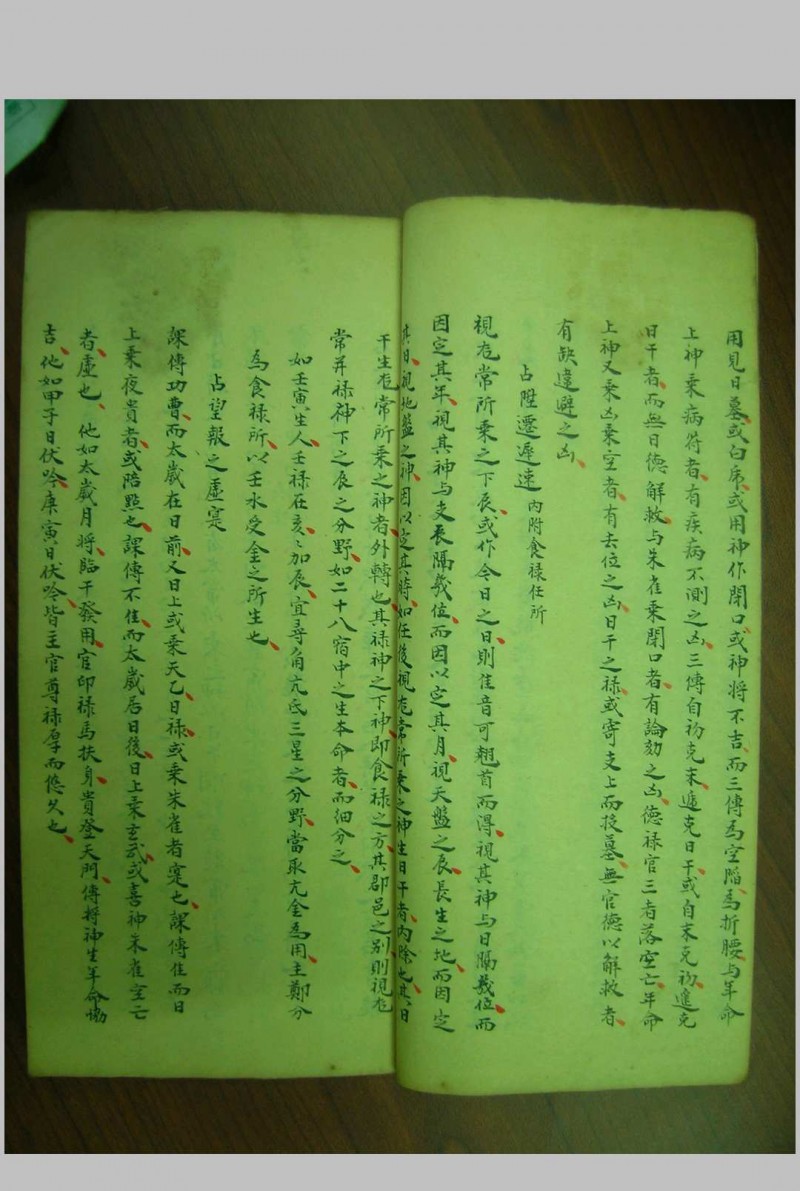 用見日墓、或白虎、或用神作閉口、或神將不吉、而三傳為空陷、為折腰、与年命
上神乘病符者、有疾病不測之凶、三傳自初克末、遞克日干、或自末克初、進克
日干者、而無日德解救、与朱雀乘閉口者、有論劾之凶、德祿官三者落空亡、年命
上神又乘凶乘空者、有去位之凶、日干之祿、或寄支上而授墓、無官德以解救者、
有缺違避之凶、
占陞遷遲速 內附食祿任所
視虎常所乘之下辰、或作今日之日、則佳音可翹首而得、視其神与日隔幾位、而
因定其年、視其神与支辰隔幾位、而因以定其月、視天盤之辰、長生之地、而因定
其日、視地盤之神、因以定其時、如任後視虎常所乘之神生日干者、內除也、其日
干生虎常所乘之神者、外轉也、其祿神之下神、即食祿之方、其郡邑之别、則視虎
常并祿神下之辰之分野、如二十八宿中之生本命者、而細分之、
如壬寅生人、壬祿在亥、亥加辰、宜尋角亢氐三星之分野、當取亢金為用、主鄭分
為食祿所、以壬水受金之所生也、
占望報之虛寔
課傳功曹、而太歲在日前、又日上或乘天乙、日祿、或乘朱雀者、寔也、課傳佳而日
上乘夜貴者、或陪點也、課傳不佳、而太歲居日後、日上乘玄武、或喜神朱雀空亡
者、虛也、他如太歲月將、臨干發用、官印祿馬扶身、貴登天門、傳將神生年命、協
吉、他如甲子日伏吟、庚寅日伏吟、皆主官尊祿厚而悠久也、